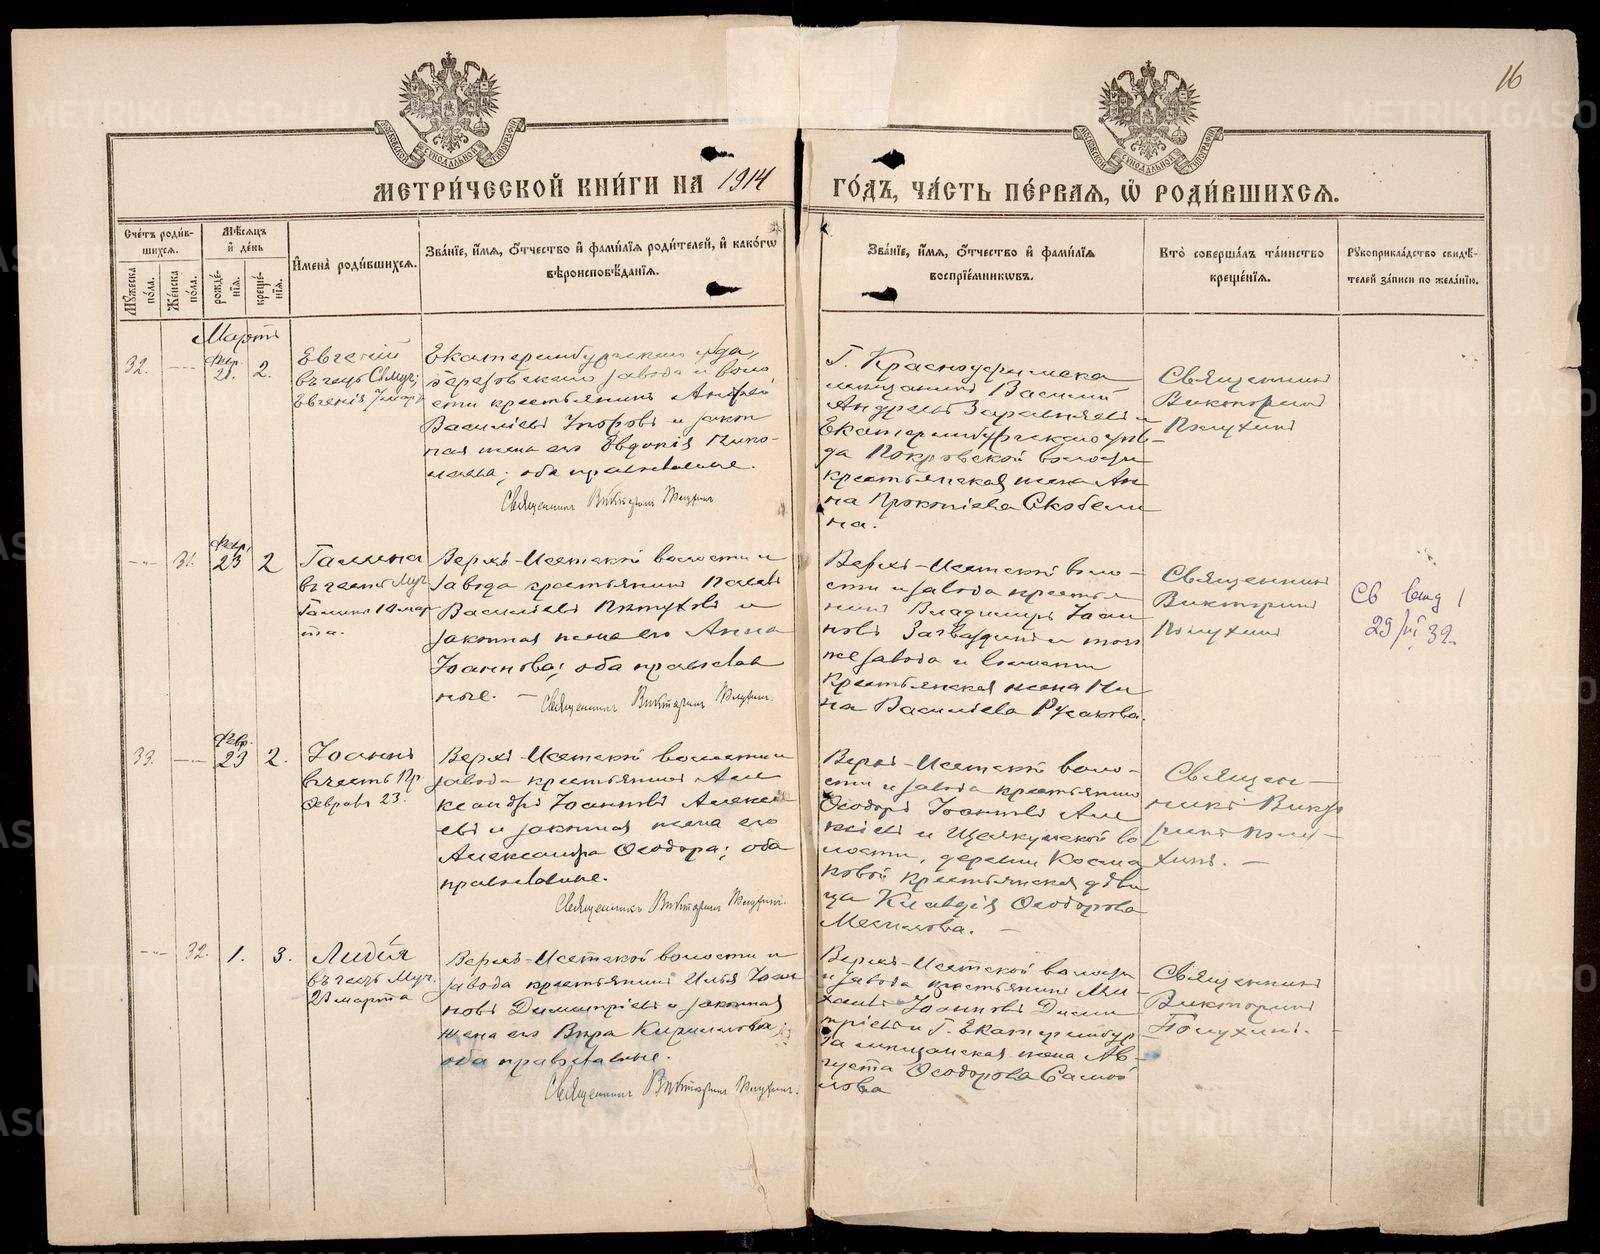 16
МОСКОВСКОЙ СѴНОДАЛЬНОЙ ТИПОГРАФІИ
МОСКОВСКОЙ СѴНОДАЛЬНОЙ ТИПОГРАФІИ
МЕТРИ́ЧЕСКОЙ КНИ́ГИ НА 1914
ГО́ДЪ, ЧА́СТЬ ПЕ́РВАЯ, Ѿ РОДИ́ВШИХСЯ.
Сче́тъ роди́в-
шихся.
Мꙋжеска по́ла.
Же́нска по́ла.
Мѣ́сяцъ
и҆ де́нь
рожде́-нїя.
креще́-нїя.
И҆мена̀ роди́вшихся.
Зва́нїе, и҆́мя, ѻ҆́тчество и҆ фами́лїя роди́телей, и҆ како́гѡ
вѣроисповѣ́данїя.
Зва́нїе, и҆́мя, ѻ҆́тчество и҆ фами́лїя
воспрїе́мниковъ.
Кто̀ соверша́лъ та́инство
креще́нїя.
Рꙋкоприкла́дство свидѣ́-
телей за́писи по жела́нїю.
Мартъ
32.
Февр.
21.
2.
Евгений
въ честь Св. Муч.
Евгенія 7 мар.
Екатеринбургскаго уѣзда,
Березовскаго завода и воло
сти крестьянинъ Андрей
Васильевъ и закон
ная жена его Евдокія Нико-
лаева; оба православные.
Священникъ Викторинъ Полухинъ
Г. Красноуфимска
мещанинъ Василій
Андреевъ и
Екатеринбургскаго уѣз-
да Покровской волости
крестьянская жена Ан
на Прокопіева Скобели
на.
Священникъ
Викторинъ
Полухинъ
31.
Февр.
23
2
Галина
въ честь Муч.
Галины 10 мар
та.
Верхъ-Исетской волости и
завода крестьянинъ Павелъ
Васильевъ Пѣтуховъ и
законная жена его Анна
Іоаннова; оба православ
ные. — Священникъ Викторинъ Полухинъ.
Верхъ-Исетской воло-
сти и завода крестья
нинъ Владимиръ Іоан
новъ и того
же завода и волости
крестьянская жена Ни
на Васильева Русакова.
Священникъ
Викторинъ
Полухинъ
29/VI 32.
33.
Февр.
23
2.
Іоаннъ
въ честь Пр.
Февраля 23.
Верхъ-Исетской волости и
завода крестьянинъ Але
ксандръ Іоанновъ Алексе
евъ и законная жена его
Александра Ѳеодора; оба
православные.
Священникъ Викторинъ Полухинъ.
Верхъ-Исетской воло-
сти и завода крестьянинъ
Ѳеодоръ Іоанновъ Але
ксѣевъ и Щелкунской во
лости, деревни Косма
ковой крестьянская дѣви
ца Клавдія Ѳеодорова
Священ-
никъ Викто
ринъ Полу-
хинъ. —
32.
1.
3.
Лидія
въ честь Муч.
23 марта
Верхъ-Исетской волости и
завода крестьянинъ Илья Іоан
новъ Димитріевъ и законная
жена его Вѣра Кириллова;
оба православные.
Священникъ Викторинъ Полухинъ.
Верхъ-Исетской волости
и завода крестьянинъ Ми-
хаилъ Іоанновъ Дими
тріевъ и Г. Екатеринбур
га мещанская жена Ав-
густа Ѳеодорова Самой
лова
Священникъ
Викторинъ
Полухинъ.
METRIKI.GASO-URAL.RU